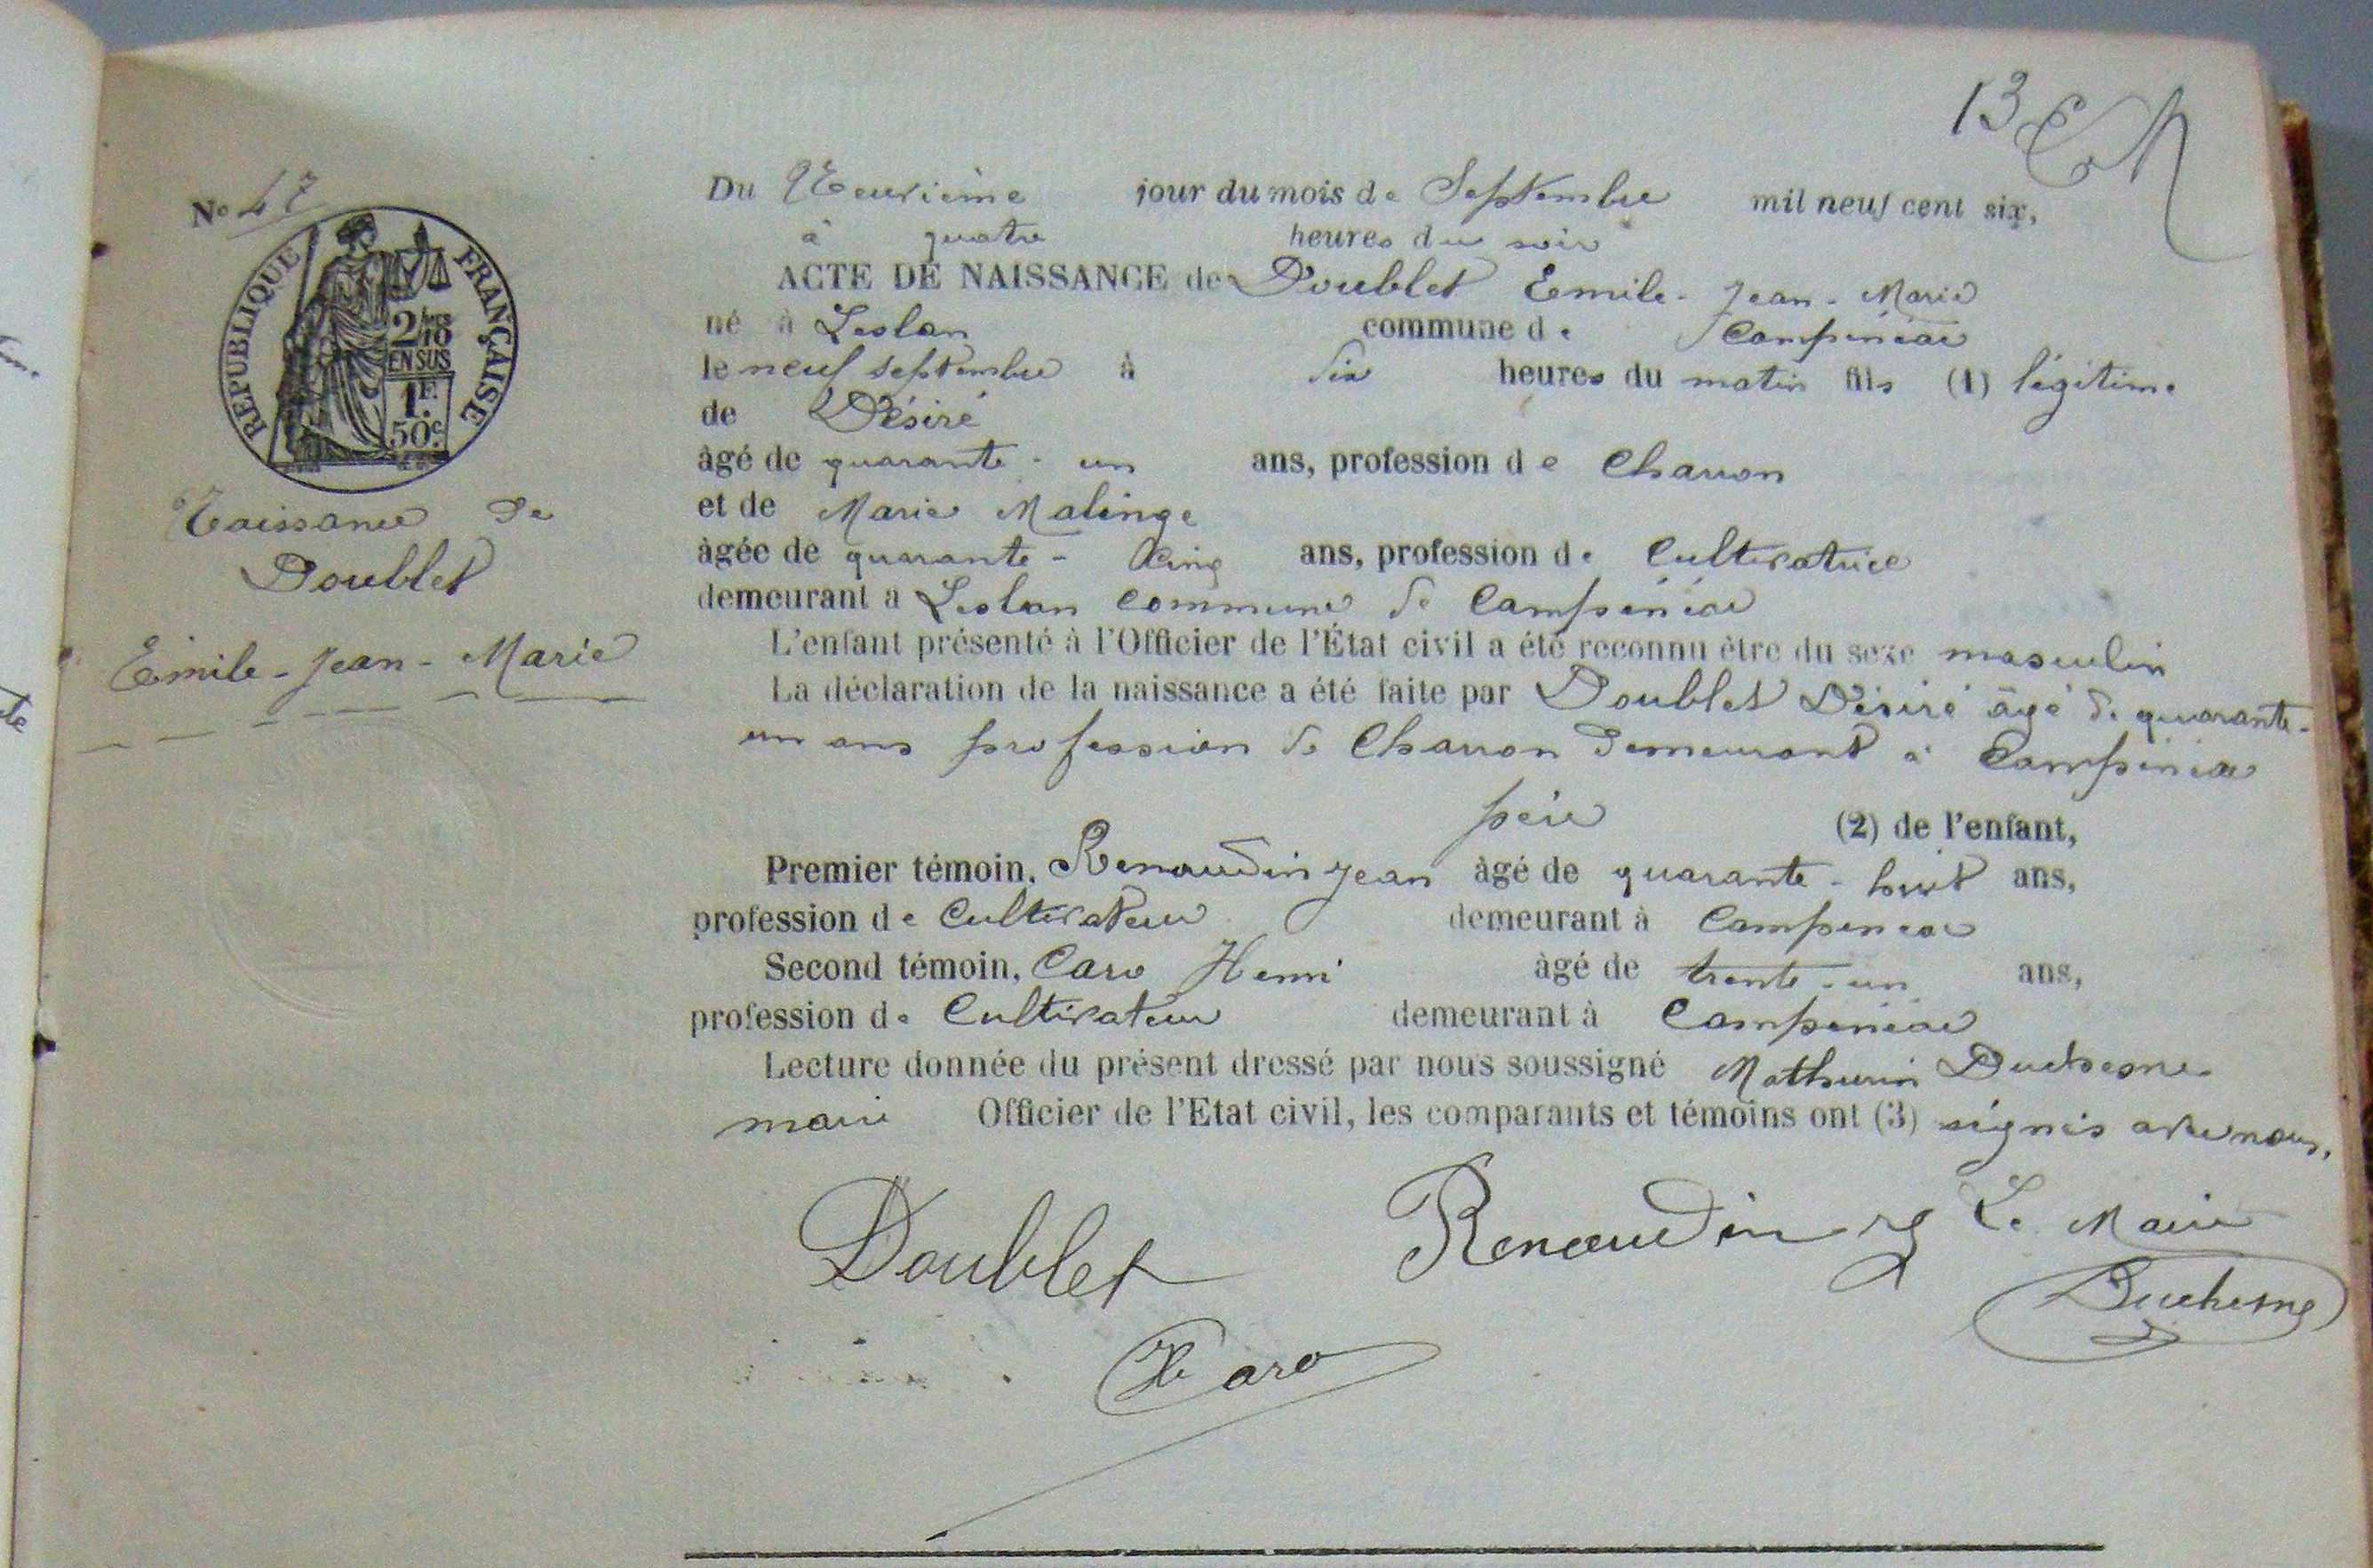 13
No 47
RÉPUBLIQUE FRANÇAISE
2/10
EN SUS
1F.
50c.
Naissance de
Doublet
Emile-Jean-Marie
Du Neuvième jour du mois de Septembre mil neuf cent six,
à quatre heures du soir
ACTE DE NAISSANCE de Doublet Emile-Jean-Marie
né à Leslan commune de Campénéac
le neuf septembre à six heures du matin fils (1) légitime
de Désiré
âgé de quarante-un ans, profession de Charron
et de Marie Malinge
âgée de quarante-cinq ans, profession de Cultivatrice
demeurant à Leslan commune de Campénéac
L'enfant présenté à l'Officier de l'État civil a été reconnu être du sexe masculin
La déclaration de la naissance a été faite par Doublet Désiré âgé de quarante-
un ans profession de Charron demeurant à Campénéac
père (2) de l'enfant,
Premier témoin, Renaudin Jean âgé de quarante-huit ans,
profession de Cultivateur demeurant à Campénéac
Second témoin, Caro Henri âgé de trente-un ans,
profession de Cultivateur demeurant à Campénéac
Lecture donnée du présent dressé par nous soussigné Mathurin Duchesne
maire Officier de l'Etat civil, les comparants et témoins ont (3) signés avec nous.
Doublet Renaudin J Le Maire
Duchesne
H Caro